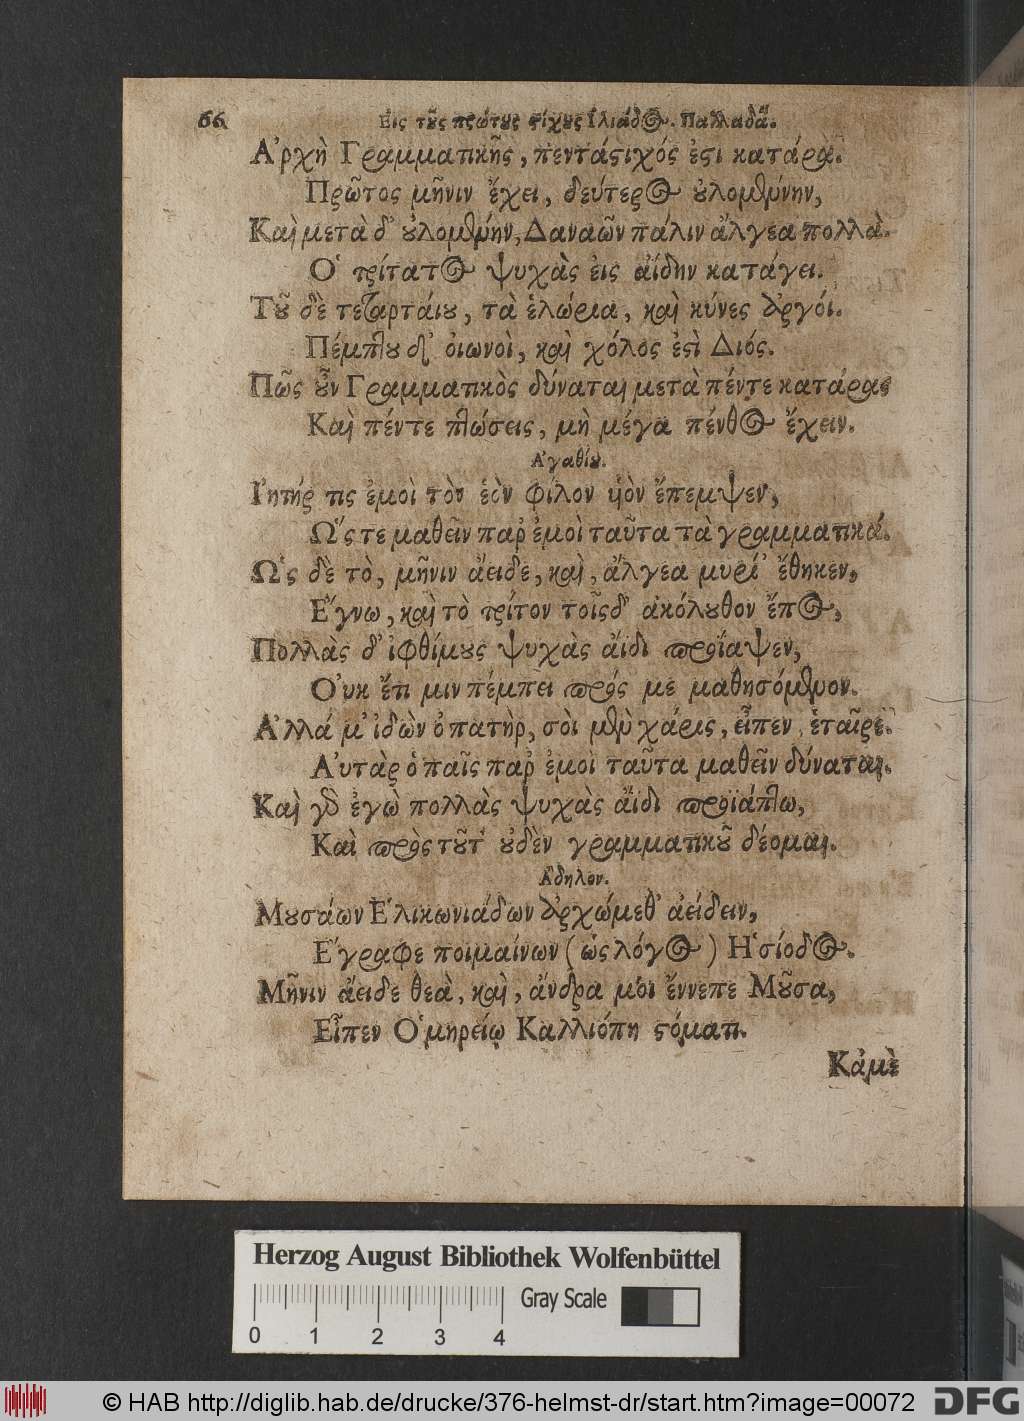 66 Εἰς τοὺς πρώτους στίχους Ἰλιάδος. Παλλαδᾶ.
Ἀρχὴ Γραμματικῆς, πεντάστιχός ἐστι κατάρα.
Πρῶτος μῆνιν ἔχει, δεύτερος οὐλομένην,
Καὶ μετὰ δ' οὐλομένην, Δαναῶν πάλιν ἄλγεα πολλὰ.
Ὁ τρίτατος ψυχὰς εἰς ἀΐδην κατάγει.
Τοῦ δὲ τεταρταίου, τὰ ἑλώρια, καὶ κύνες ἀργοί.
Πέμπτου δ' οἰωνοὶ, καὶ χόλος ἐστὶ Διός.
Πῶς οὖν Γραμματικὸς δύναται μετὰ πέντε κατάρας
Καὶ πέντε πτώσεις, μὴ μέγα πένθος ἔχειν.
Ἀγαθίου.
Ἰητήρ τις ἐμοὶ τὸν ἑὸν φίλον υἱὸν ἔπεμψεν,
Ὥστε μαθεῖν παρ' ἐμοὶ ταῦτα τὰ γραμματικά.
Ὡς δὲ τὸ, μῆνιν ἄειδε, καὶ, ἄλγεα μυρί' ἔθηκεν,
Ἔγνω, καὶ τὸ τρίτον τοῖσδ' ἀκόλουθον ἔπος,
Πολλὰς δ' ἰφθίμους ψυχὰς ἄϊδι προΐαψεν,
Οὐκ ἔτι μιν πέμπει πρός με μαθησόμενον.
Ἀλλά μ' ἰδὼν ὁ πατὴρ, σοὶ μὲν χάρις, εἶπεν, ἑταῖρε.
Αὐτὰρ ὁ παῖς παρ' ἐμοὶ ταῦτα μαθεῖν δύναται.
Καὶ γὰρ ἐγὼ πολλὰς ψυχὰς ἄϊδι προϊάπτω,
Καὶ πρὸς τοῦτ' οὐδὲν γραμματικοῦ δέομαι.
Ἄδηλον.
Μουσάων Ἑλικωνιάδων ἀρχώμεθ' ἀείδειν,
Ἔγραφε ποιμαίνων (ὡς λόγος) Ἡσίοδος.
Μῆνιν ἄειδε θεὰ, καὶ, ἄνδρα μοι ἔννεπε Μοῦσα,
Εἶπεν Ὁμηρείῳ Καλλιόπη στόματι.
Κἀμὲ
Herzog August Bibliothek Wolfenbüttel
0 1 2 3 4 Gray Scale
© HAB http://diglib.hab.de/drucke/376-helmst-dr/start.htm?image=00072 DFG